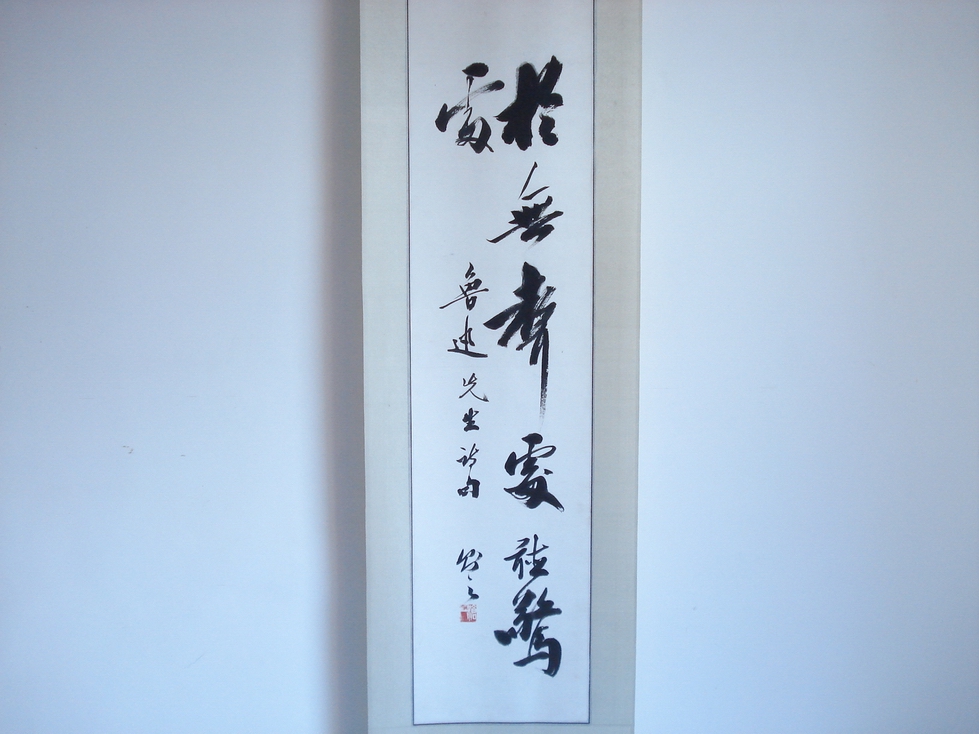 於無聲處聽驚
雷
魯迅先生詩句